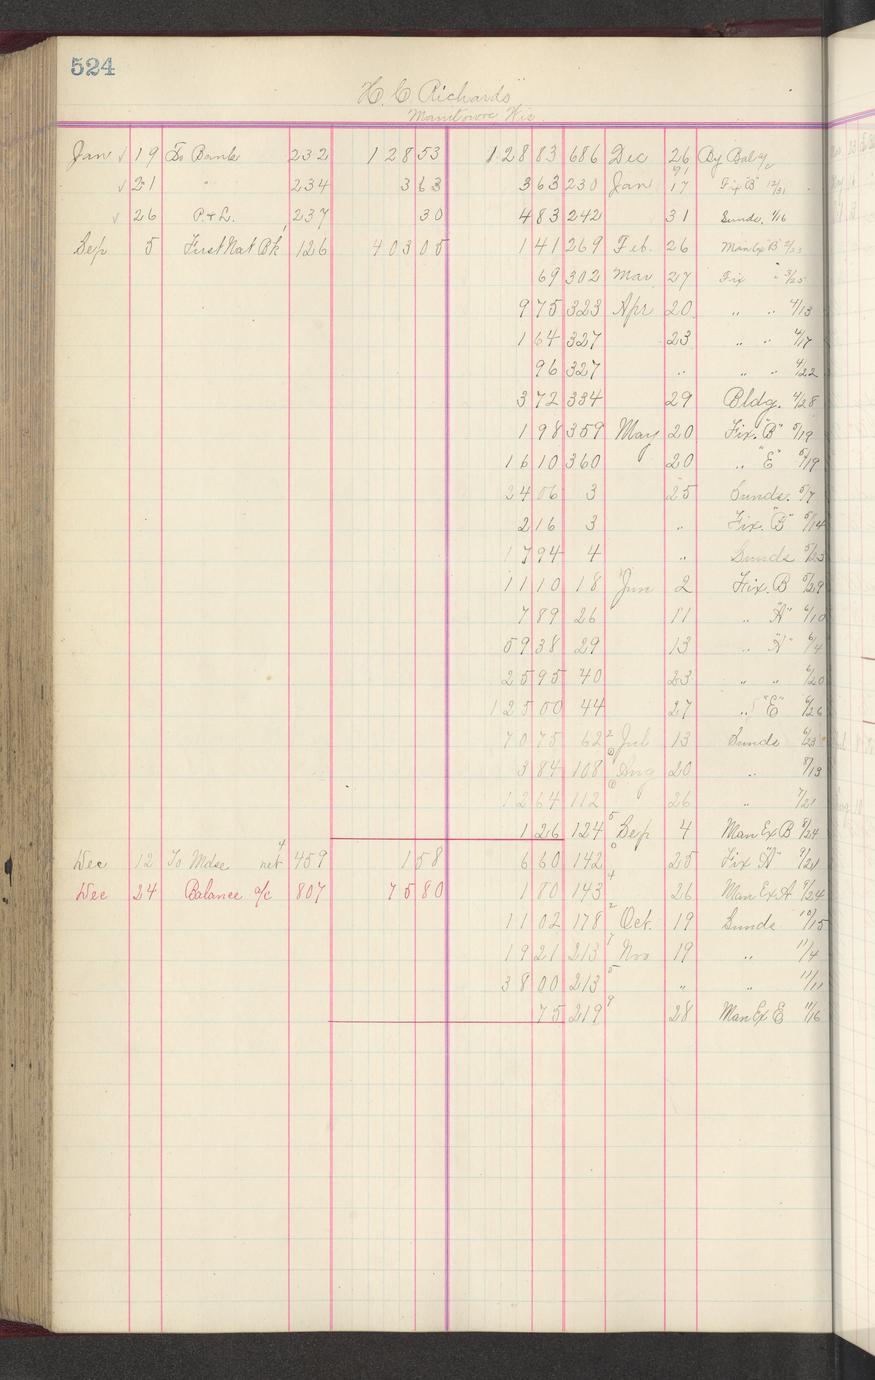 524
H. C. Richards
Manitowoc Wis.
Jan 19 To Bank 232 128 53 128 83 686 Dec 26 By Bal a/c
21 " 234 3 63 3 63 230 Jan 91 17 Fix "B" 12/31
26 P. & L. 237 30 4 83 242 31 Sunds. 1/16
Sep 5 First Nat Bk 126 403 05 1 41 269 Feb. 26 Man Ex "B"
69 302 Mar 27 Fix " 3/25
9 75 323 Apr 20 " " 4/13
1 64 327 23 " " 4/17
96 327 " " " 4/22
3 72 334 29 Bldg. 4/28
1 98 359 May 20 Fix. "B" 5/19
16 10 360 20 " "E" 5/19
24 06 3 25 Sunds. 5/7
2 16 3 " Fix. "B" 5/14
17 94 4 " Sunds 5/23
11 10 18 Jun 2 Fix. B 5/29
7 89 26 11 " "A" 6/10
59 38 29 13 " "A" 6/4
25 95 40 23 " " 6/20
125 00 44 27 " "E" 6/26
70 75 62 2 Jul 13 Sunds 6/23
3 84 108 Aug 20 " 8/13
12 64 112 6 26 " 7/21
1 26 124 5 Sep 4 Man Ex B 8/24
Dec 12 To Mdse 4 net 459 1 58 6 60 142 0 25 Fix "A" 9/21
Dec 24 Balance a/c 807 75 80 1 80 143 4 26 Man Ex A 9/24
11 02 178 2 Oct. 19 Sunds 10/15
19 21 213 7 Nov 19 " 11/4
38 00 213 5 " " 11/11
75 219 9 28 Man Ex E 11/16